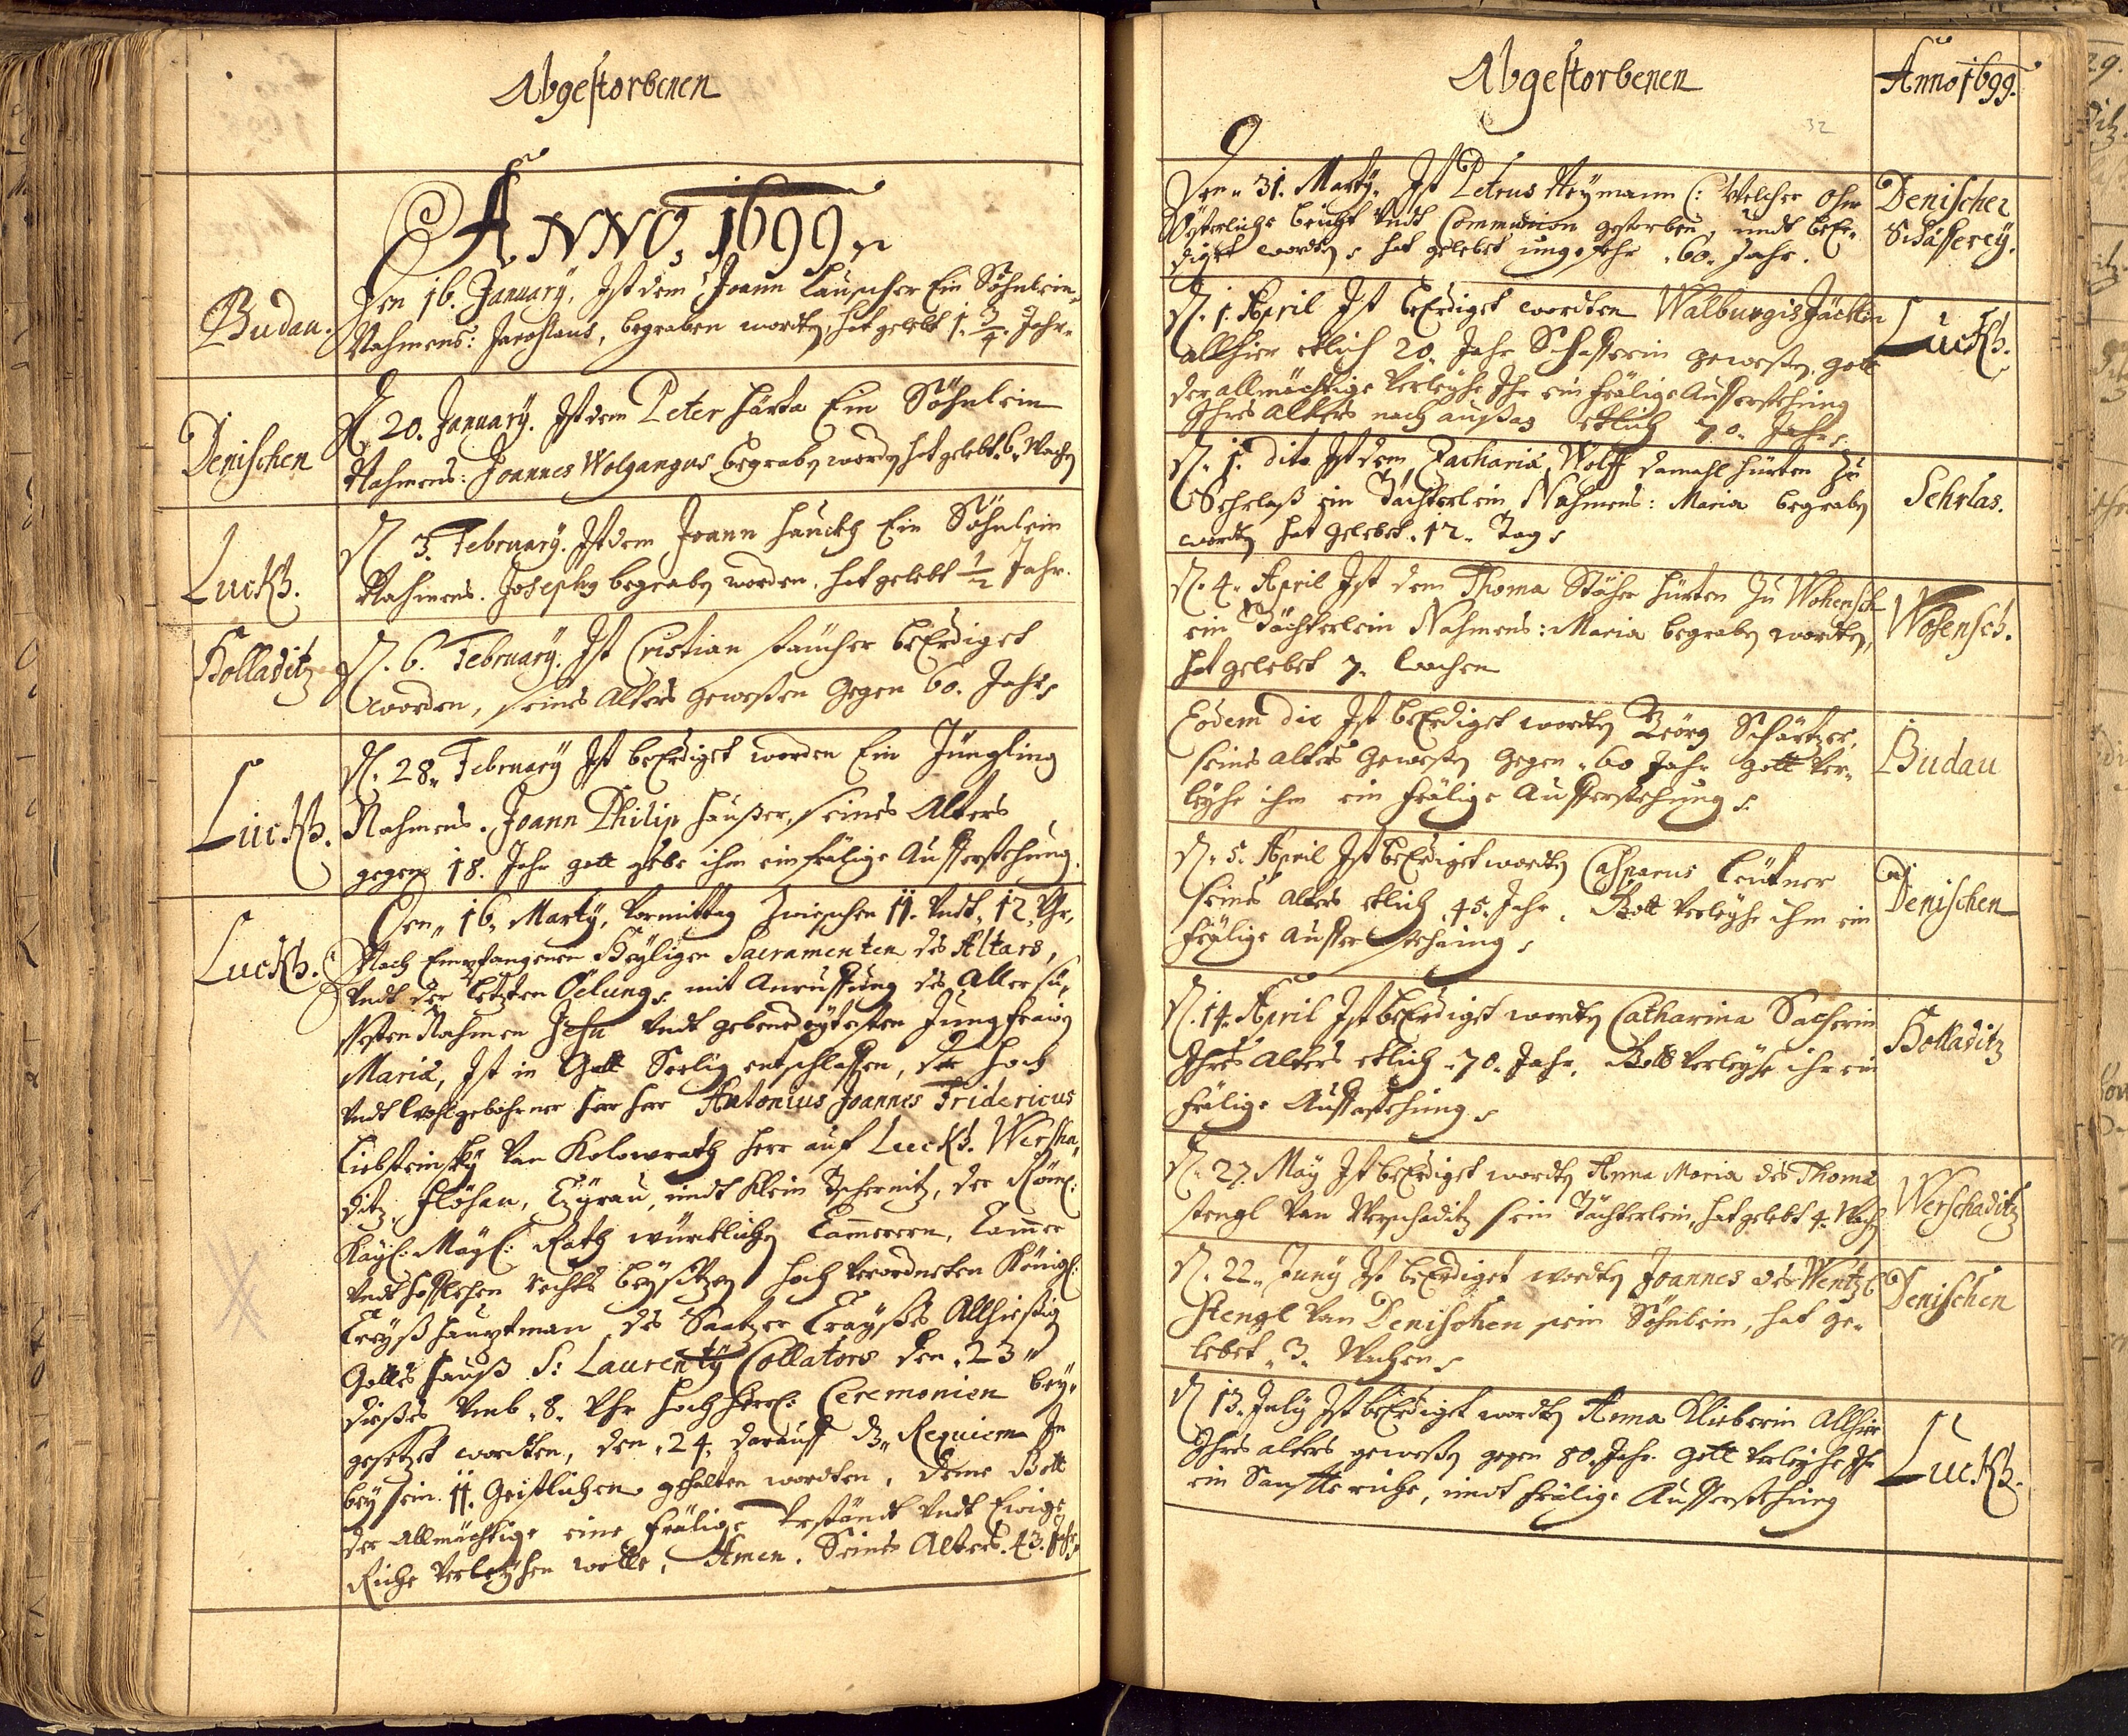 Abgestorbenen
ANNO, 1699
Budau.
Den 16. January, Ist dem Joann Lauscher Ein Söhnlein
Nahmens: Jaroslaus, begraben wordten, hat gelebt 1. 3/4. Jahr.
Denischen
D. 20. January. Ist dem Peter Härta Ein Söhnlein
Nahmens: Joannes Wolgangus begraben worden hat gelebt. 6. Wochen
Luckh.
D. 3. February. Ist dem Joann Hauckh Ein Söhnlein
Nahmens. Josephus begraben worden, hat gelebt 1/2 Jahr.
Kolladitz
D. 6. February. Ist Cristian beErdiget
worden, seines Alters gewessen gegen 60. Jahr
Luckh.
D. 28. February Ist beErdiget worden Ein Jüngling
Nahmens. Joann Philip Hausser, seines Alters
gegen 18. Jahr gott gebe ihm ein frölige Aufferstehung.
Luckh.
Den 16. Marty, Vormittag zwischen 11. Vndt. 12. Vhr,
Nach Empfangenen Heyligen Sacramenten des Altars,
Vndt der letzten Oelung, mit Anruffung des Allersü-
sesten Nahmen Jesu Vndt gebenedeytesten Jungfrawen
Mariä, Ist in Gott Seelig entschlaffen, der Hoch
Vndt Wohlgebohrner Herr Herr Antonius Joannes Fridericus
Liebsteinsky Van Kolowrath Herr auf Luckh. Wersha-
ditz, Flöhau, undt Klein Tschernitz, der Röm:
Kaÿs: Maÿ: Rath würcklicher Cammerern, Cammer
Vndt Hofflehen rechts beysitzer, Hoch Verordneten Königl:
Creyss Hauptman des Saatzer Crayses Allhiesig
Gottes Hauss S: Laurenty Collators den. 23
disses Vmb. 8. Vhr Hoch Ceremonien bey-
gesetzet wordten, den. 24. darauff Requiem In
bey sein. 11. Geistlichen gehalten wordten, deme Gott
der Allmächtige eine frölige Vrständt Vndt Ewige
Ruhe Verleyhen wolle, Amen. Seines Alters. 43. Jahr
Abgestorbenen
Anno 1699.
32
Den 31. Marty. Ist Petrus Heymann (: Welcher ohne
Österliche beücht Vndt Communion gestorben, undt beEr-
diget wordten, hat gelebet ungefehr. 60. Jahr.
Denischer
Schäfferey.
D. 1. April Ist beErdiget wordten Walburgis Jäcklin
allhier etlich 20. Jahr Schafferin gewessen, gott
der allmächtige Verleyhe Ihr ein frölige Aufferstehung
Ihres Alters nach etlich 70. Jahr
Luckh.
D. 1. dito Ist dem Zacharia Wolff damahl Hürten zu
Sehrlass ein Töchterlein Nahmens: Maria begraben
wordten hat gelebet. 12. Tag
Sehrlas.
D. 4. April Ist dem Thoma Hürten zu Wohensch
ein Töchterlein Nahmens: Maria begraben wordten,
hat gelebet 7. wochen
Wohensch.
Eodem die Ist beErdiget wordten Georg Schärtzer,
seines alters gewessen gegen. 60 Jahr gott Ver-
leyhe ihm ein frölige Aufferstehung
Budau
D. 5. April Ist beErdiget wordten Casparus Leütner
seines alters etlich 45. Jahr. Gott Verleyhe ihm ein
frölige Aufferstehung
Denischen
D. 14. April Ist beErdiget wordten Catharina Sacherin
Ihres Alters etlich. 70. Jahr. Gott Verleyhe ihr ein
frölige Aufferstehung
Kolladitz
D. 27. May Ist beErdiget wordten Anna Maria des Thoma
Stengl Van Werschaditz sein Töchterlein, hat gelebt 4. Woch
Werschaditz
D. 22. Juny Ist beErdiget wordten Joannes des Wentzl
Stengl Van Denischen sein Söhnlein, hat ge-
lebet. 3. Wochen
Denischen
D 13. July Ist beErdiget wordten Anna Klieberin Allhir
Ihres alters gewessen gegen 80. Jahr. Gott Verleyhe Ihr
ein Sanffte ruhe, undt frölige Aufferstehung
Luckh.